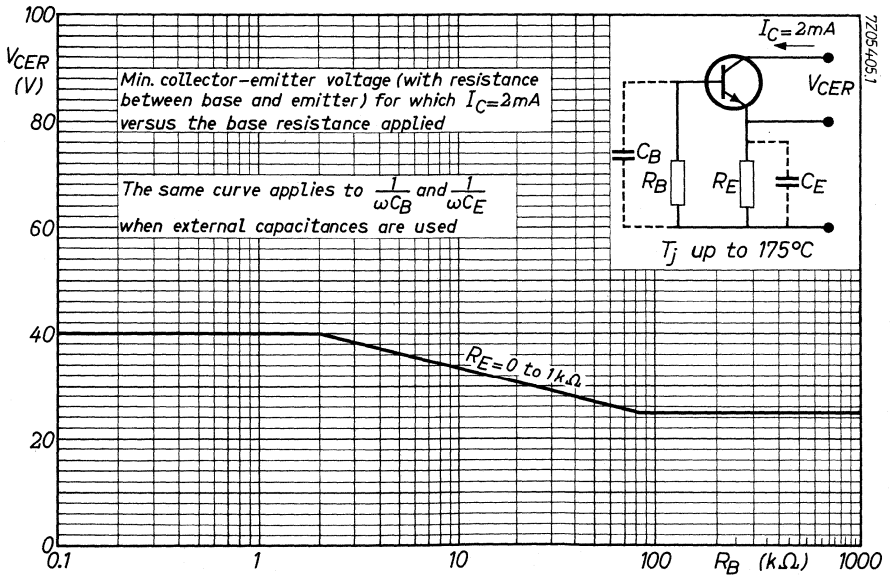 100
V_CER
(V)
80
60
40
20
0
Min. collector-emitter voltage (with resistance
between base and emitter) for which I_C=2mA
versus the base resistance applied
The same curve applies to 1/ωC_B and 1/ωC_E
when external capacitances are used
I_C=2mA
V_CER
C_B
R_B
R_E
C_E
T_j up to 175°C
7205405.1
R_E=0 to 1kΩ
0.1
1
10
100
R_B (kΩ)
1000